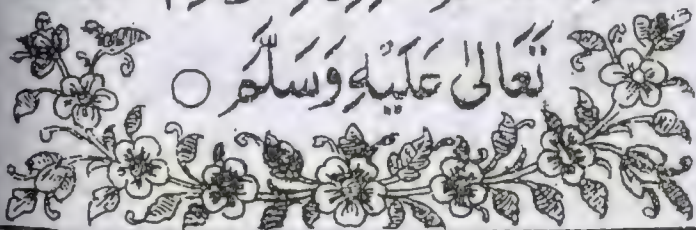 تَعَالىٰ عَلَيْهِ وَسَلَّمَ ○